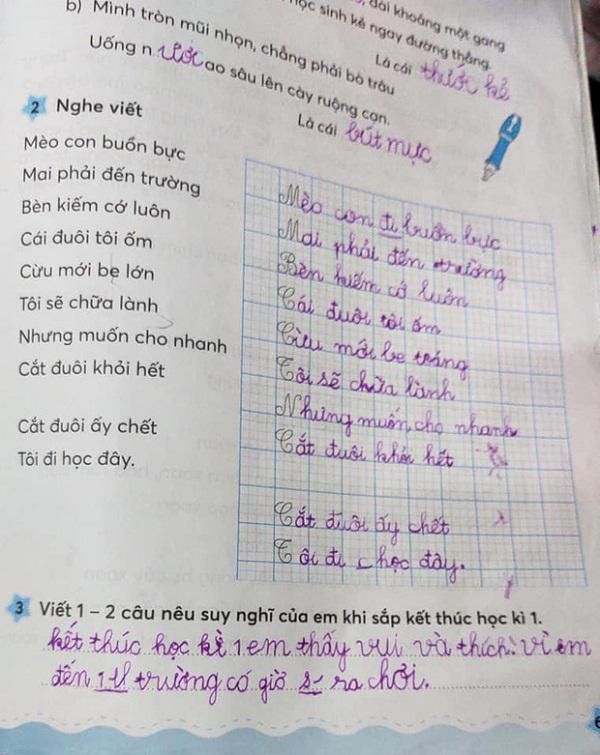 dài khoảng một gang
học sinh kẻ ngay đường thẳng.
Là cái thước kẻ
b) Mình tròn mũi nhọn, chẳng phải bò trâu
Uống nước ao sâu lên cày ruộng cạn.
Là cái bút mực
2 Nghe viết
Mèo con buồn bực
Mai phải đến trường
Bèn kiếm cớ luôn
Cái đuôi tôi ốm
Cừu mới be lớn
Tôi sẽ chữa lành
Nhưng muốn cho nhanh
Cắt đuôi khỏi hết
Cắt đuôi ấy chết
Tôi đi học đây.
Mèo con đi buồn bực
Mai phải đến trường
Bèn kiếm cớ luôn
Cái đuôi tôi ốm
Cừu mới be toáng
Tôi sẽ chữa lành
Nhưng muốn cho nhanh
Cắt đuôi khỏi hết
Cắt đuôi ấy chết
Tôi đi học đây.
3 Viết 1 – 2 câu nêu suy nghĩ của em khi sắp kết thúc học kì 1.
kết thúc học kì 1 em thấy vui và thích vì em
đến trường có giờ ra chơi.